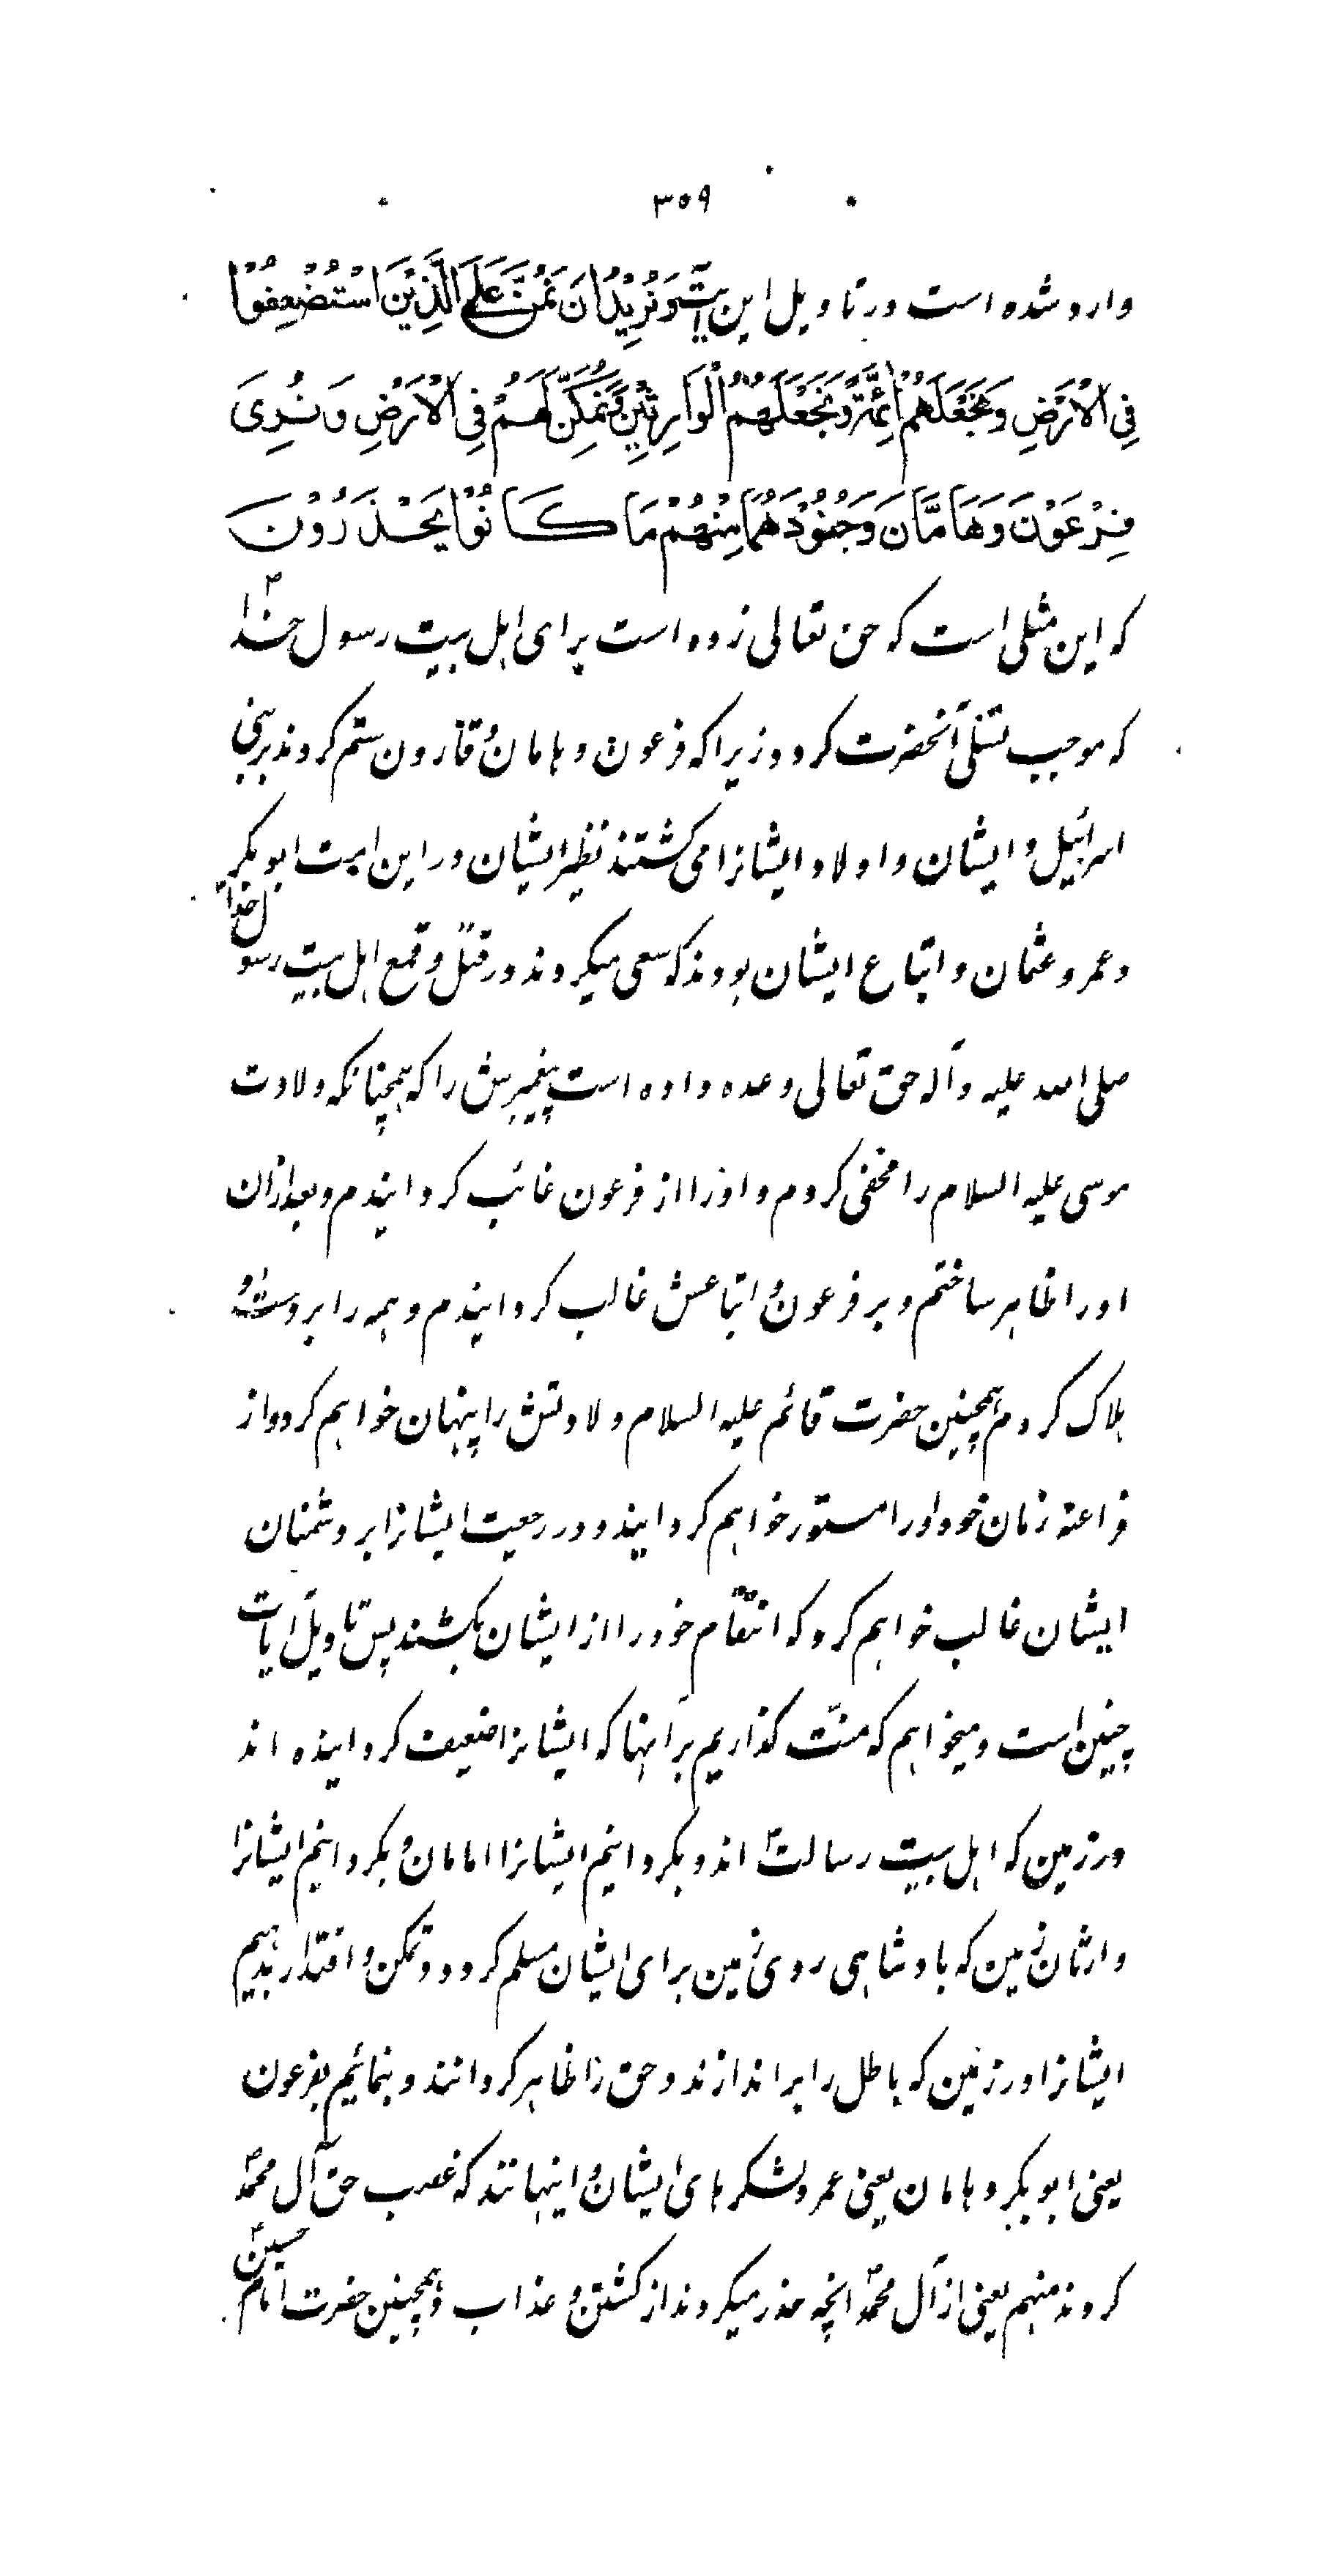 ٣٥٩
وارد شده است در تاویل این آیت وَنُرِیْدُ اَنْ نَمُنَّ عَلَی الَّذِیْنَ اسْتُضْعِفُوْا
فِی الْاَرْضِ وَنَجْعَلَهُمْ اَئِمَّةً وَنَجْعَلَهُمُ الْوَارِثِیْنَ وَنُمَکِّنَ لَهُمْ فِی الْاَرْضِ وَنُرِیَ
فِرْعَوْنَ وَهَامَّانَ وَجُنُوْدَهُمَا مِنْهُمْ مَا کَانُوْا یَحْذَرُوْنَ
که این مثلی است که حق تعالی زده است برای اهل بیت رسول خدا ؐ
که موجب تسلی آنحضرت گردد زیرا که فرعون و هامان و قارون ستم کردند بر بنی
اسرائیل و ایشان و اولاد ایشانرا می کشتند نظیر ایشان در این امت ابوبکر
و عمر و عثمان و اتباع ایشان بودند که سعی میکردند در قتل و قمع اهل بیت رسول خدا
صلی الله علیه و آله حق تعالی وعده داده است پیغمبرش را که همچنانکه ولادت
موسی علیه السلام را مخفی کردم و اورا از فرعون غائب گردانیدم و بعد ازان
اورا ظاهر ساختم و بر فرعون و اتباعش غالب گردانیدم و همه را بر دست او
هلاک کردم همچنین حضرت قائم علیه السلام ولادتش را پنهان خواهم کرد و از
فراعنه زمان خود اورا مستور خواهم گردانید و در رجعت ایشانرا بر دشمنان
ایشان غالب خواهم کرد که انتقام خود را از ایشان بکشند پس تاویل آیات
چنین است و میخواهم که منّت گذاریم بر آنها که ایشانرا ضعیف گردانیده اند
در زمین که اهل بیت رسالتؐ اند و بگردانیم ایشانرا امامان و بگردانیم ایشانرا
وارثان زمین که بادشاهی روی زمین برای ایشان مسلم گردد و تمکن و اقتدار بدهیم
ایشانرا در زمین که باطل را براندازند و حق را ظاهر گردانند و بنمائیم بفرعون
یعنی ابوبکر و هامان یعنی عمر و لشکرهای ایشان و اینهانند که غصب حق آل محمدؐ
کردند منهم یعنی از آل محمدؐ انچه حذر میکردند از کشتن و عذاب و همچنین حضرت امام حسینؑ